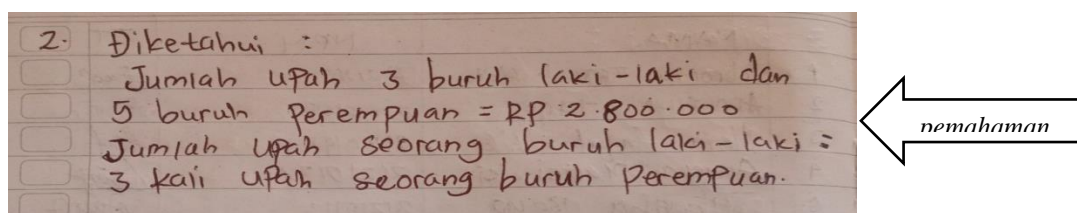 2. Diketahui :
Jumlah upah 3 buruh laki-laki dan
5 buruh Perempuan = RP 2.800.000
Jumlah upah seorang buruh laki-laki =
3 kali upah seorang buruh Perempuan.
pemahaman